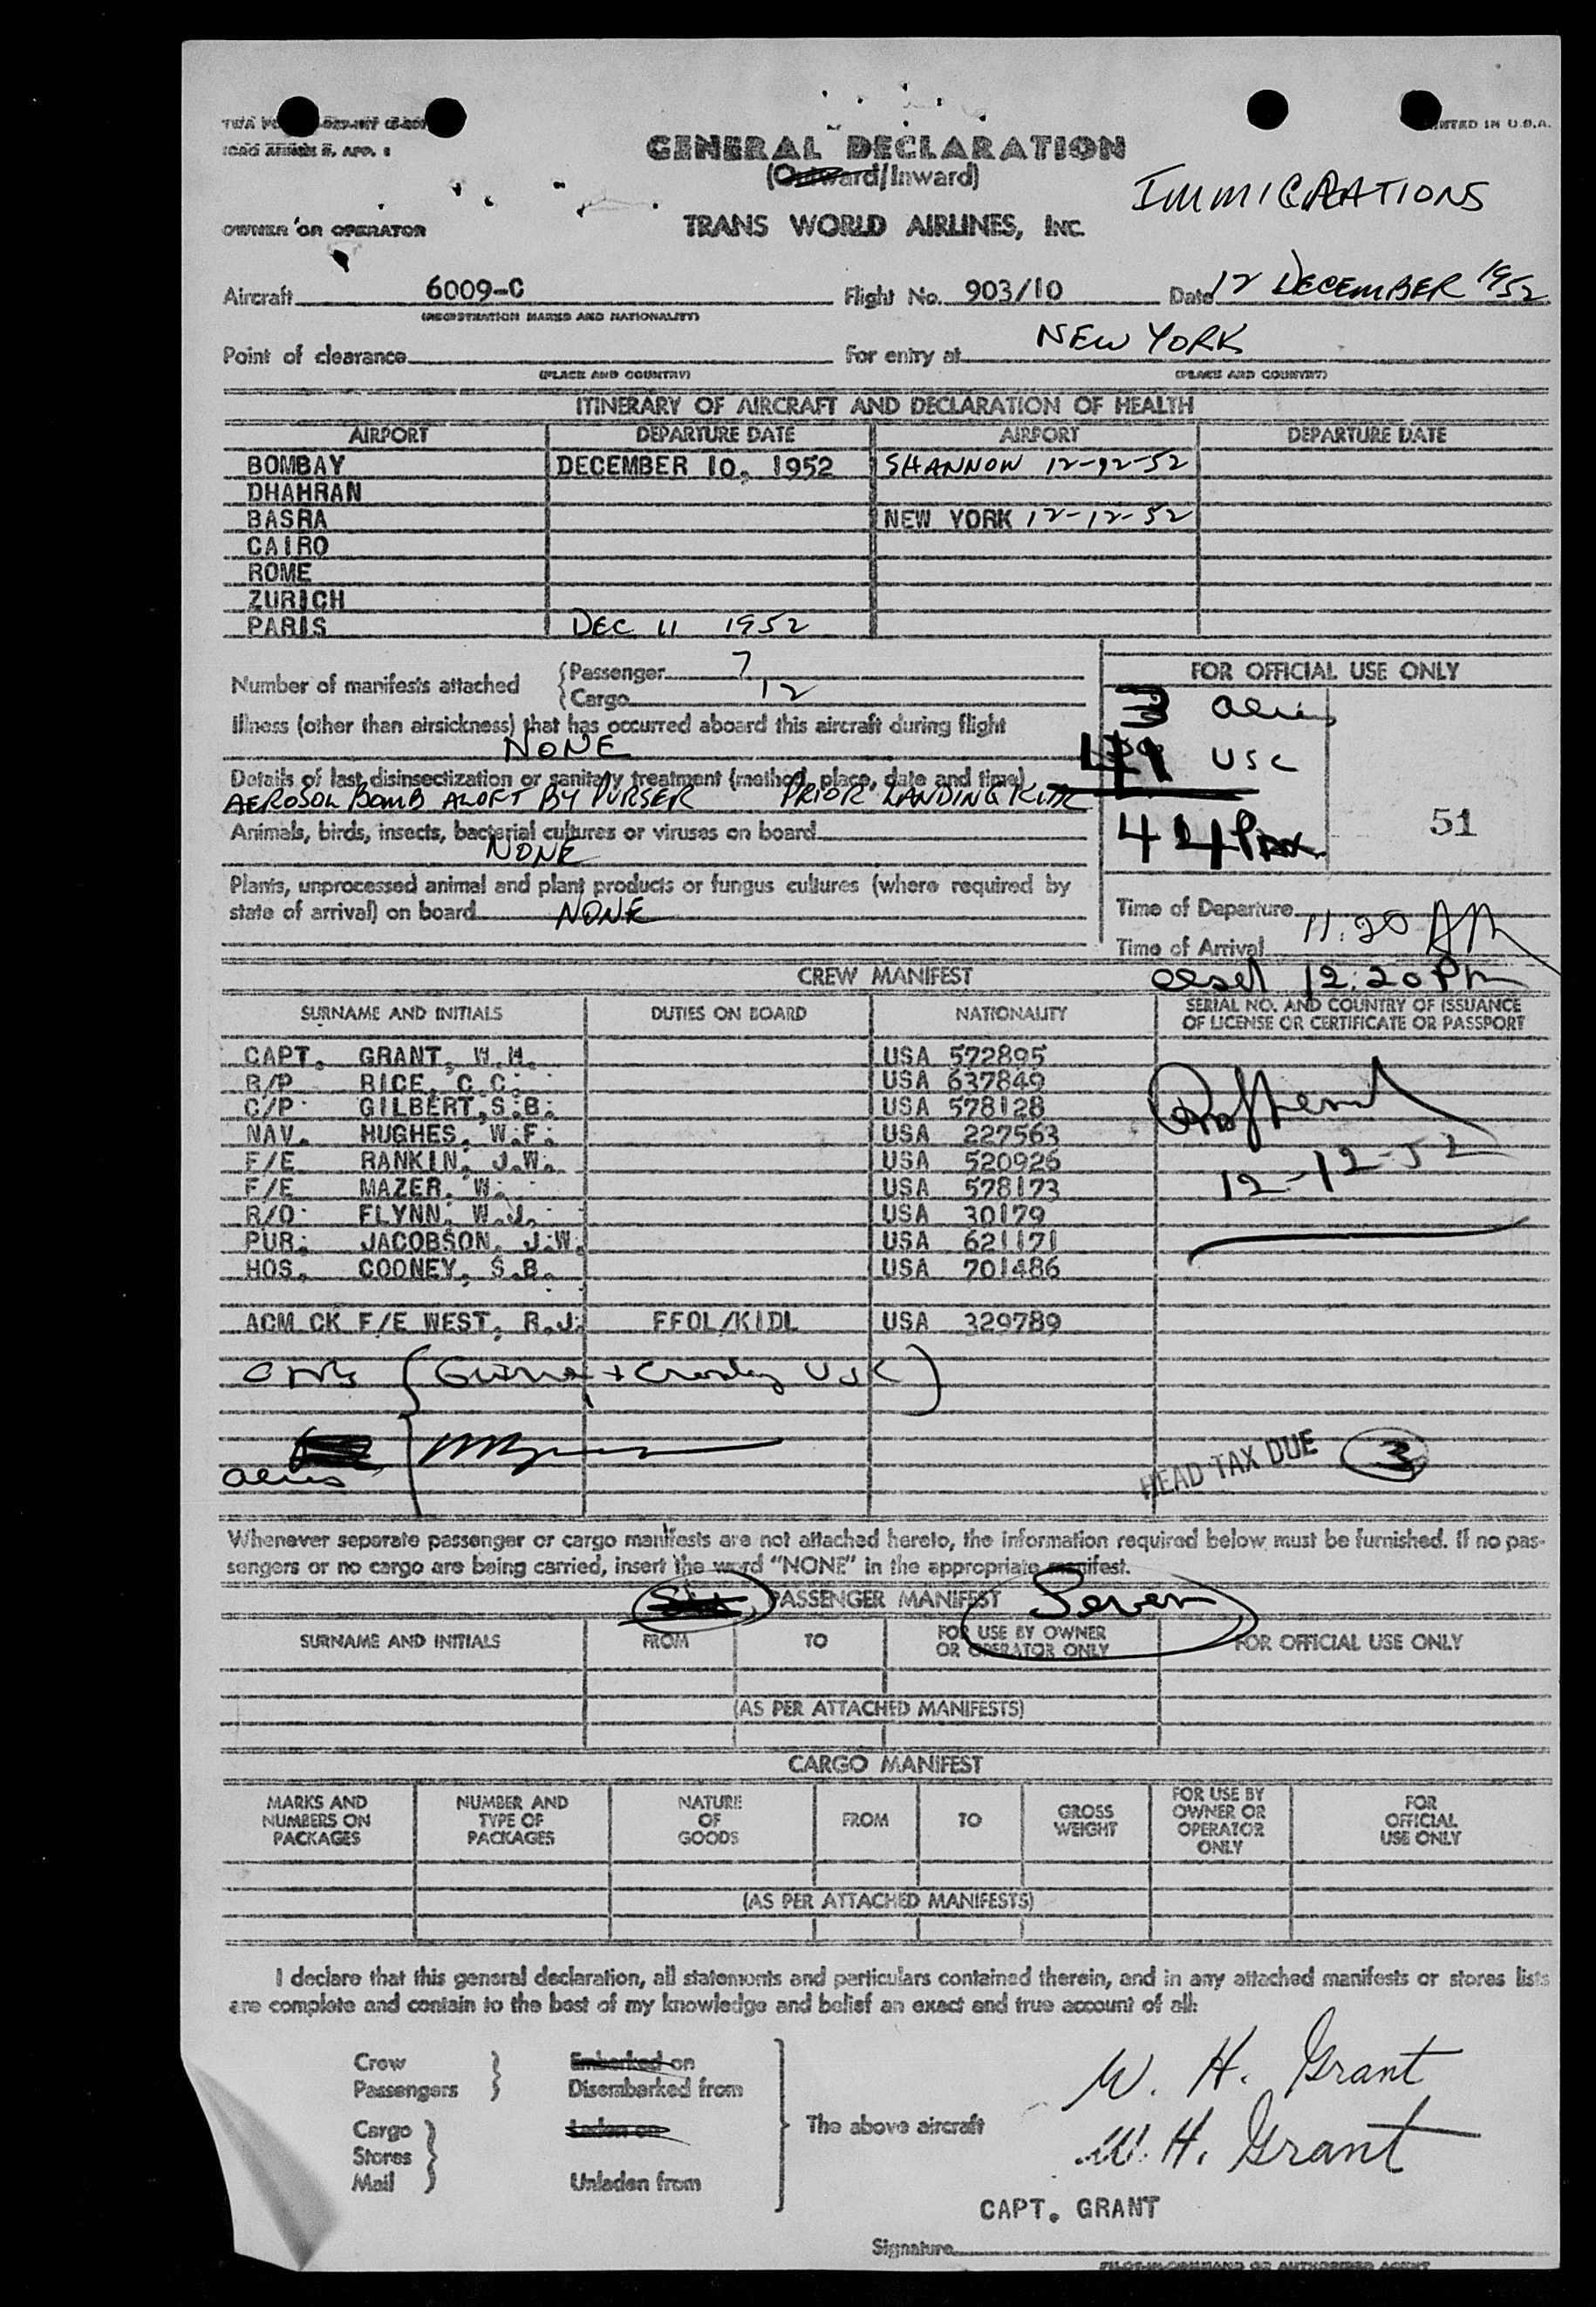 PRINTED IN U.S.A.
ICAO ANNEX 9, APP. 1
GENERAL DECLARATION
(Outward/Inward)
IMMIGRATIONS
OWNER OR OPERATOR TRANS WORLD AIRLINES, INC.
Aircraft 6009-C Flight No. 903/10 Date 12 DECEMBER 1952
(REGISTRATION MARKS AND NATIONALITY)
Point of clearance For entry at NEW YORK
(PLACE AND COUNTRY) (PLACE AND COUNTRY)
ITINERARY OF AIRCRAFT AND DECLARATION OF HEALTH
AIRPORT DEPARTURE DATE AIRPORT DEPARTURE DATE
BOMBAY DECEMBER 10, 1952 SHANNON 12-12-52
DHAHRAN
BASRA NEW YORK 12-12-52
CAIRO
ROME
ZURICH
PARIS DEC 11 1952
Number of manifests attached
Passenger 7
Cargo 12
Illness (other than airsickness) that has occurred aboard this aircraft during flight
NONE
Details of last disinsectization or sanitary treatment (method, place, date and time)
AEROSOL BOMB ALOFT BY PURSER PRIOR LANDING
Animals, birds, insects, bacterial cultures or viruses on board
NONE
Plants, unprocessed animal and plant products or fungus cultures (where required by
state of arrival) on board NONE
FOR OFFICIAL USE ONLY
3 aliens
41 USC
44 Pax
51
Time of Departure
Time of Arrival 11:20 AM
12:20 PM
CREW MANIFEST
SURNAME AND INITIALS DUTIES ON BOARD NATIONALITY SERIAL NO. AND COUNTRY OF ISSUANCE
OF LICENSE OR CERTIFICATE OR PASSPORT
CAPT. GRANT, W.H. USA 572895
R/P RICE, C.C. USA 637849
C/P GILBERT, S.B. USA 578128
NAV. HUGHES, W.F. USA 227563
F/E RANKIN, J.W. USA 520926
F/E MAZER, W. USA 578173
R/O FLYNN, W.J. USA 30179
PUR. JACOBSON, J.W. USA 621171
HOS. COONEY, S.B. USA 701486
12-12-52
ACM CK F/E WEST, R.J. FFOL/KIDL USA 329789
aliens
HEAD TAX DUE 3
Whenever separate passenger or cargo manifests are not attached hereto, the information required below must be furnished. If no pas-
sengers or no cargo are being carried, insert the word "NONE" in the appropriate manifest.
PASSENGER MANIFEST Seven
SURNAME AND INITIALS FROM TO FOR USE BY OWNER
OR OPERATOR ONLY FOR OFFICIAL USE ONLY
(AS PER ATTACHED MANIFESTS)
CARGO MANIFEST
MARKS AND NUMBERS ON PACKAGES NUMBER AND TYPE OF PACKAGES NATURE OF GOODS FROM TO GROSS WEIGHT FOR USE BY OWNER OR OPERATOR ONLY FOR OFFICIAL USE ONLY
(AS PER ATTACHED MANIFESTS)
I declare that this general declaration, all statements and particulars contained therein, and in any attached manifests or stores lists
are complete and contain to the best of my knowledge and belief an exact and true account of all:
Crew Embarked on
Passengers Disembarked from
Cargo Laden on
Stores
Mail Unladen from
The above aircraft
W. H. Grant
W. H. Grant
CAPT. GRANT
Signature
PILOT-IN-COMMAND OR AUTHORIZED AGENT